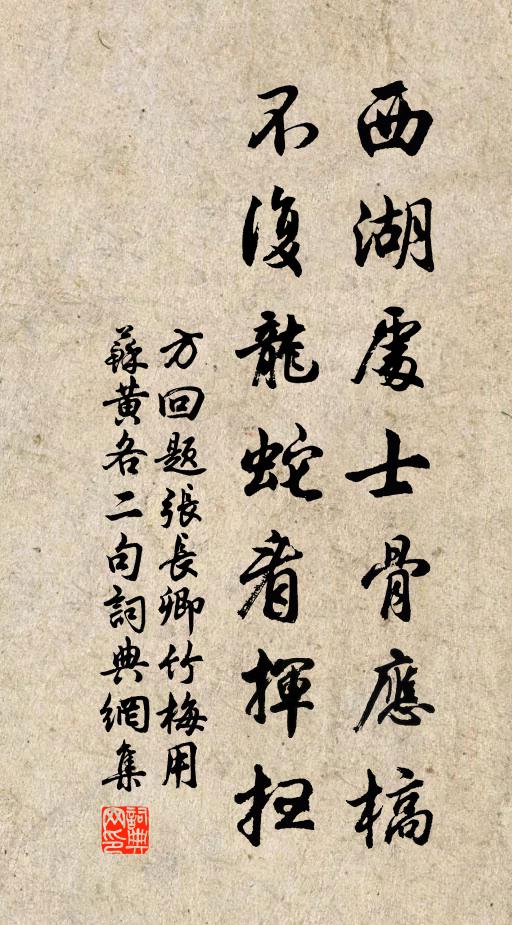 西湖處士骨應槁
不復龍蛇看揮掃
方回題張長卿竹梅用
蘇黃各二句詞典網集
詞典
网印